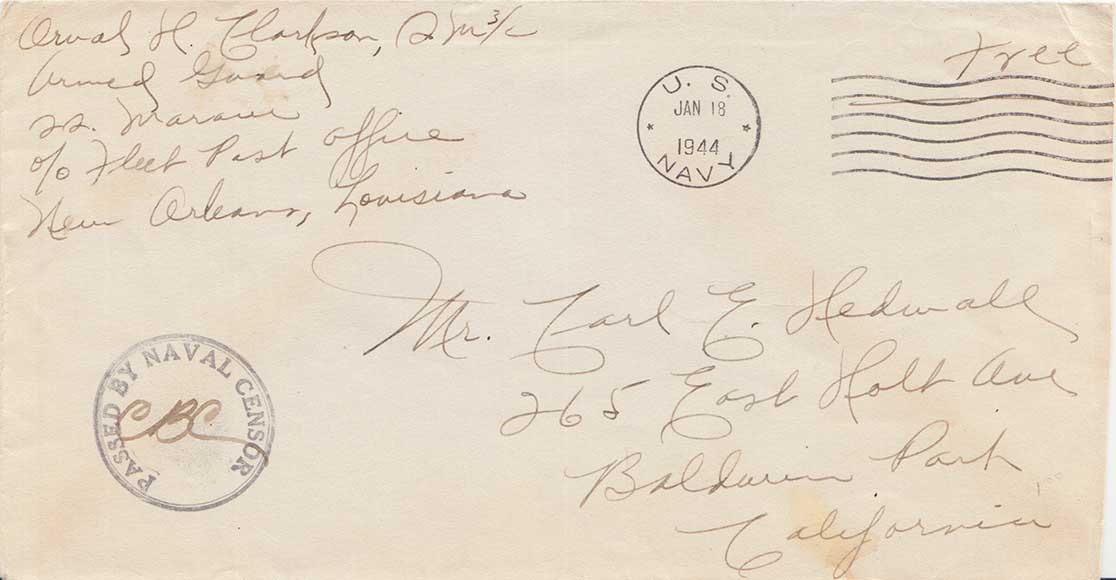 Orval H. Clarkson, SM 3/c
Armed Guard
ss. Marore
c/o Fleet Post Office
New Orleans, Louisiana
U. S.
JAN 18
1944
NAVY
Free
Mr. Carl E. Hedwall
265 East Holt Ave
Baldwin Park
California
PASSED BY NAVAL CENSOR
CBC